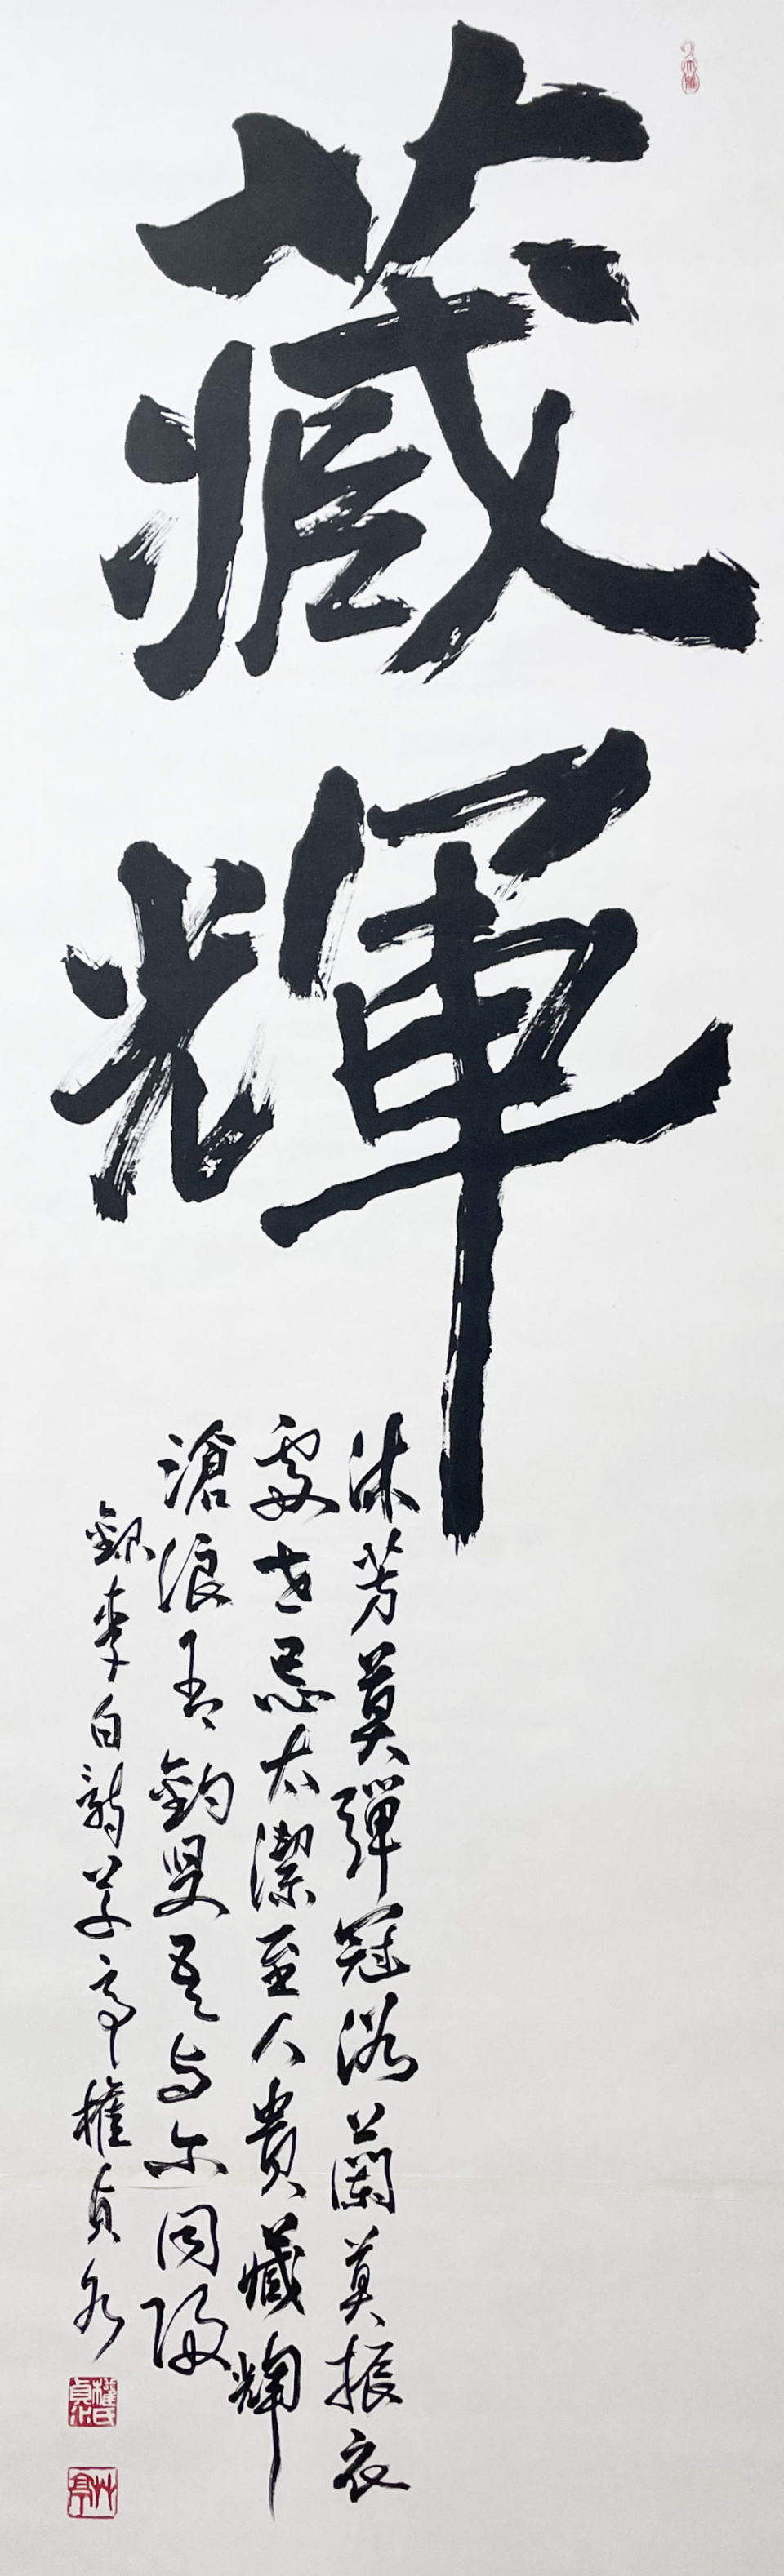 藏輝
沐芳莫彈冠浴蘭莫振衣
處世忌太潔至人貴藏輝
滄浪有釣叟吾与尔同歸
錄李白詩草亭權貞
艸亭